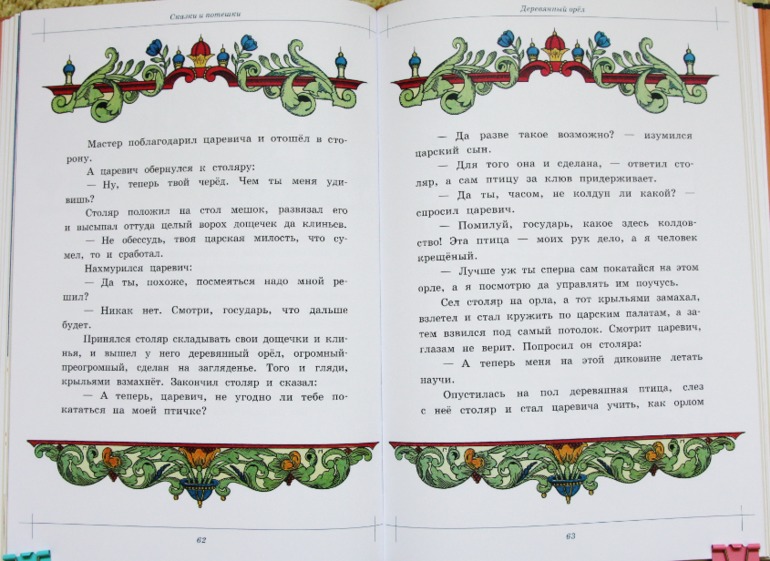 Сказки и потешки
Мастер поблагодарил царевича и отошёл в сто-
рону.
А царевич обернулся к столяру:
— Ну, теперь твой черёд. Чем ты меня уди-
вишь?
Столяр положил на стол мешок, развязал его
и высыпал оттуда целый ворох дощечек да клиньев.
— Не обессудь, твоя царская милость, что су-
мел, то и сработал.
Нахмурился царевич:
— Да ты, похоже, посмеяться надо мной ре-
шил?
— Никак нет. Смотри, государь, что дальше
будет.
Принялся столяр складывать свои дощечки и кли-
нья, и вышел у него деревянный орёл, огромный-
преогромный, сделан на загляденье. Того и гляди,
крыльями взмахнёт. Закончил столяр и сказал:
— А теперь, царевич, не угодно ли тебе по-
кататься на моей птичке?
62
Деревянный орёл
— Да разве такое возможно? — изумился
царский сын.
— Для того она и сделана, — ответил сто-
ляр, а сам птицу за клюв придерживает.
— Да ты, часом, не колдун ли какой? —
спросил царевич.
— Помилуй, государь, какое здесь колдов-
ство! Эта птица — моих рук дело, а я человек
крещёный.
— Лучше уж ты сперва сам покатайся на этом
орле, а я посмотрю да управлять им поучусь.
Сел столяр на орла, а тот крыльями замахал,
взлетел и стал кружить по царским палатам, а за-
тем взвился под самый потолок. Смотрит царевич,
глазам не верит. Попросил он столяра:
— А теперь меня на этой диковине летать
научи.
Опустилась на пол деревянная птица, слез
с неё столяр и стал царевича учить, как орлом
63